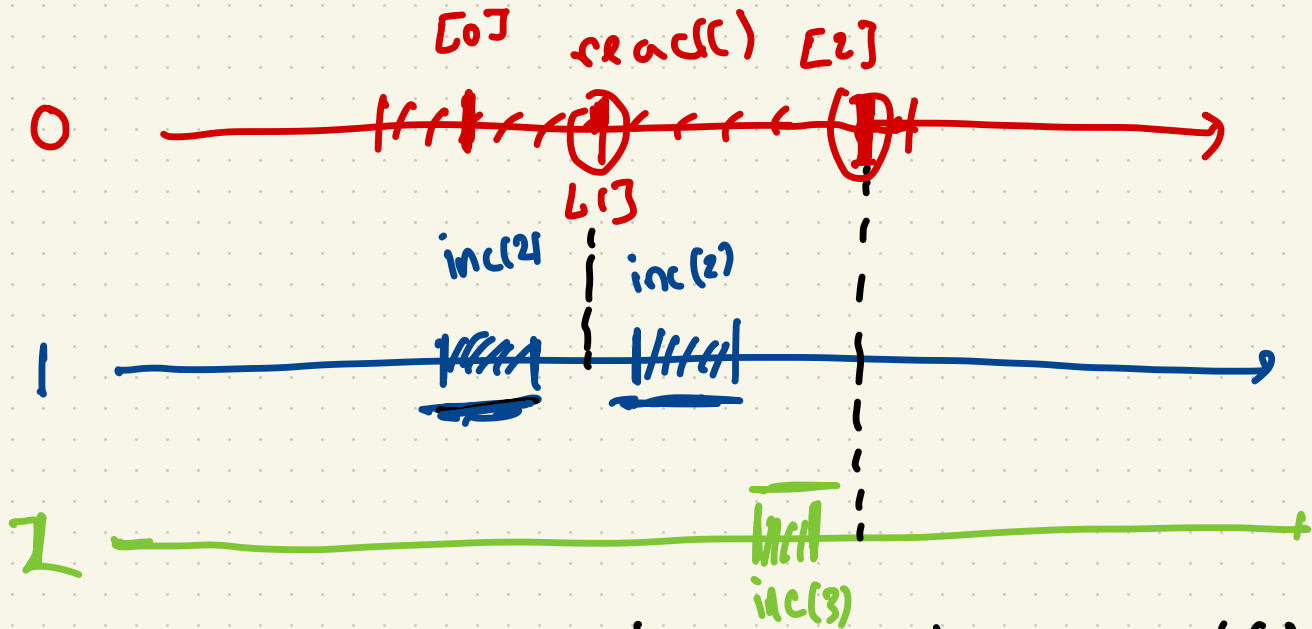 [0] read() [2]
0
[1]
inc(2) inc(2)
1
2
inc(3)